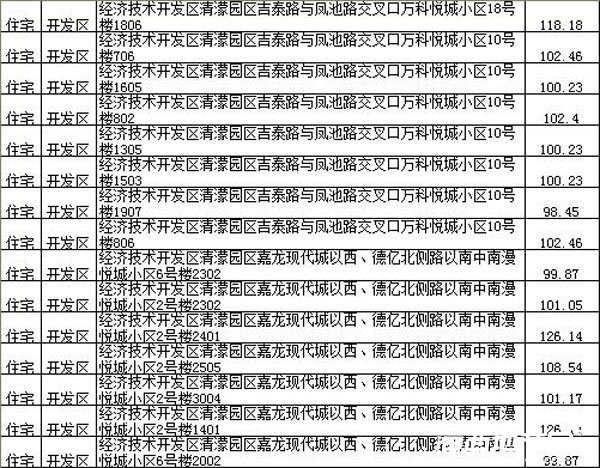 经济技术开发区清濛园区吉泰路与凤池路交叉口万科悦城小区18号
住宅 开发区 楼1806 118.18
经济技术开发区清濛园区吉泰路与凤池路交叉口万科悦城小区10号
住宅 开发区 楼706 102.46
经济技术开发区清濛园区吉泰路与凤池路交叉口万科悦城小区10号
住宅 开发区 楼1605 100.23
经济技术开发区清濛园区吉泰路与凤池路交叉口万科悦城小区10号
住宅 开发区 楼802 102.4
经济技术开发区清濛园区吉泰路与凤池路交叉口万科悦城小区10号
住宅 开发区 楼1305 100.23
经济技术开发区清濛园区吉泰路与凤池路交叉口万科悦城小区10号
住宅 开发区 楼1503 100.23
经济技术开发区清濛园区吉泰路与凤池路交叉口万科悦城小区10号
住宅 开发区 楼1907 98.45
经济技术开发区清濛园区吉泰路与凤池路交叉口万科悦城小区10号
住宅 开发区 楼806 102.46
经济技术开发区清濛园区嘉龙现代城以西、德亿北侧路以南中南漫
住宅 开发区 悦城小区6号楼2302 99.87
经济技术开发区清濛园区嘉龙现代城以西、德亿北侧路以南中南漫
住宅 开发区 悦城小区2号楼2302 101.05
经济技术开发区清濛园区嘉龙现代城以西、德亿北侧路以南中南漫
住宅 开发区 悦城小区2号楼2401 126.14
经济技术开发区清濛园区嘉龙现代城以西、德亿北侧路以南中南漫
住宅 开发区 悦城小区2号楼2505 108.54
经济技术开发区清濛园区嘉龙现代城以西、德亿北侧路以南中南漫
住宅 开发区 悦城小区2号楼3004 101.17
经济技术开发区清濛园区嘉龙现代城以西、德亿北侧路以南中南漫
住宅 开发区 悦城小区2号楼1401
经济技术开发区清濛园区嘉龙现代城以西、德亿北侧路以南中南漫
住宅 开发区 悦城小区6号楼2002 99.87